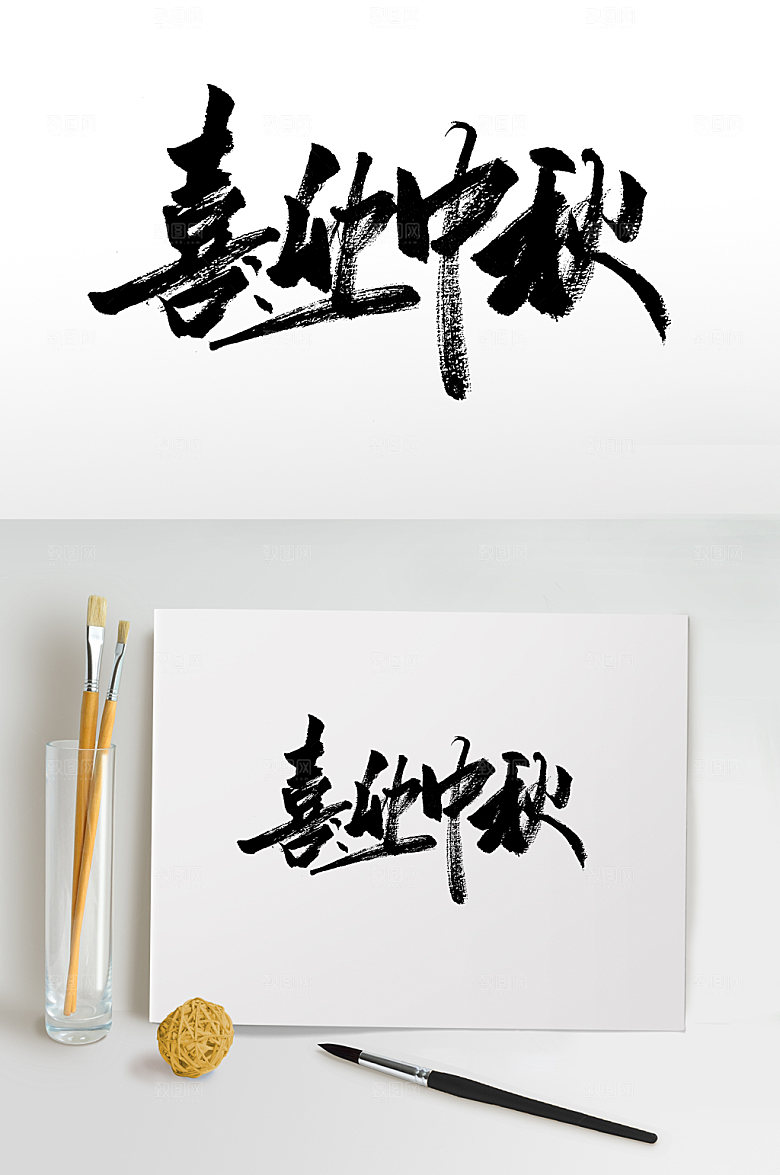 喜迎中秋
喜迎中秋